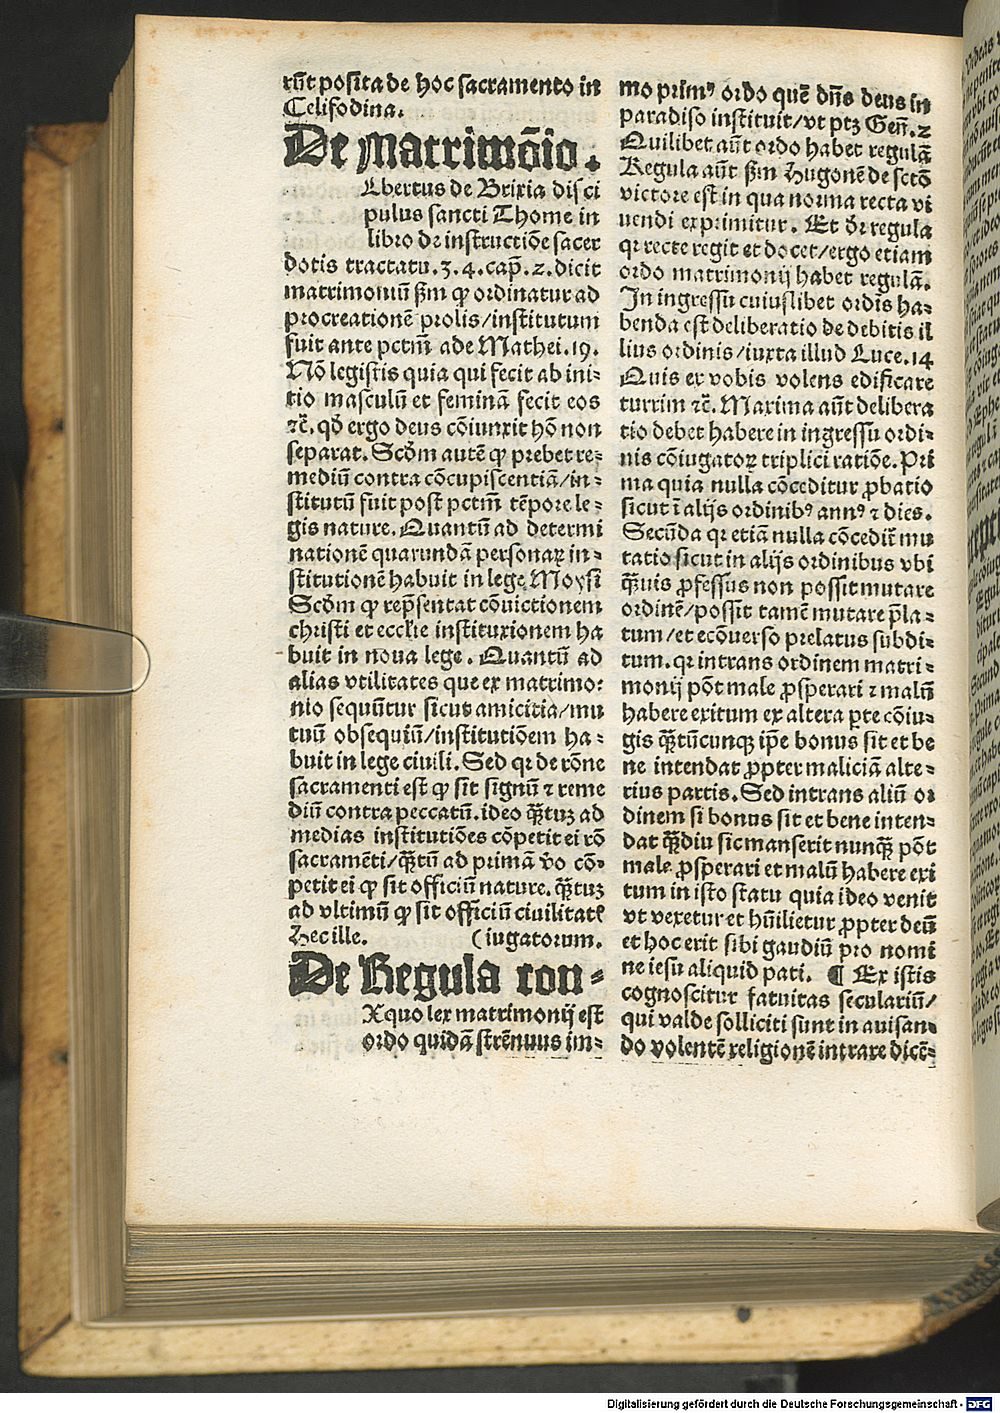 rūt posita de hoc sacramento in
Celifodina.
De Matrimōio.
Lbertus de Brixia disci
pulus sancti Thome in
libro dꝛ instructiōe sacer
dotis tractatu. 3. 4. cap̄. 2. dicit
matrimoniū ẜm ꝙ ordinatur ad
procreationē prolis/institutum
fuit ante pctm̄ ade Mathei. 19.
Nō legistis quia qui fecit ab ini⸗
tio masculū et feminā fecit eos
⁊c̄. qđ ergo deus cōiunxit hō non
separat. Scđm autē ꝙ prebet re⸗
mediū contra cōcupiscentiā/in⸗
stitutū fuit post pctm̄ tēpore le⸗
gis nature. Quantū ad determi
nationē quarundā personaꝝ in⸗
stitutionē habuit in lege Moysi
Scđm ꝙ rep̄sentat cōuictionem
christi et eccl̄ie instituxionem ha
buit in noua lege. Quantū ad
alias vtilitates que ex matrimo⸗
nio sequūtur sicus amicitia/mu
tuū obsequiū/institutiōem ha⸗
buit in lege ciuili. Sed qꝛ de rōne
sacramenti est ꝙ sit signū ⁊ reme
diū contra peccatū. ideo q̄ꝫtuꝫ ad
medias institutiōes cōpetit ei rō
sacramēti/q̄ꝫtū ad primā v̄o cō⸗
petit ei ꝙ sit officiū nature. q̄ꝫtuꝫ
ad vltimū ꝙ sit officiū ciuilitatꝭ
Hec ille. (iugatorum.
De Regula con⸗
Xquo lex matrimonij est
ordo quidā strēnuus im⸗
mo primꝰ ordo quē dn̄s deus in
paradiso instituit/vt ptꝫ Geñ. 2
Quilibet aūt ordo habet regulā
Regula aūt ẜm Hugonē de sctō
victore est in qua norma recta vi
uendi exprimitur. Et dꝛ regula
qꝛ recte regit et docet/ergo etiam
ordo matrimonij habet regulā.
In ingressu cuiuslibet ordīs ha⸗
benda est deliberatio de debitis il
lius ordinis/iuxta illud Luce. 14
Quis ex vobis volens edificare
turrim ⁊c̄. Maxima aūt delibera
tio debet habere in ingressu ordi⸗
nis cōiugatoꝝ triplici ratiōe. Pri
ma quia nulla cōceditur ꝓbatio
sicut ī alijs ordinibꝰ annꝰ ⁊ dies.
Secūda qꝛ etiā nulla cōcedit̄ mu
tatio sicut in alijs ordinibus vbi
q̄ꝫuis ꝓfessus non possit mutare
ordinē/possit tamē mutare p̄la⸗
tum/et ecōuerso prelatus subdi⸗
tum. qꝛ intrans ordinem matri⸗
monij pōt male ꝓsperari ⁊ malū
habere exitum ex altera ꝑte cōiu⸗
gis q̄ꝫtūcunqꝫ ip̄e bonus sit et be
ne intendat ꝓpter maliciā alte⸗
rius partis. Sed intrans aliū or
dinem si bonus sit et bene inten⸗
dat q̄ꝫdiu sic manserit nunq̄ꝫ pōt
male ꝓsperari et malū habere exi
tum in isto statu quia ideo venit
vt vexetur et hūilietur ꝓpter deū
et hoc erit sibi gaudiū pro nomi
ne iesu aliquid pati. ¶ Ex istis
cognoscitur fatuitas seculariū/
qui valde solliciti sunt in auisan⸗
do volentē religionē intrare dicē⸗
Digitalisierung gefördert durch die Deutsche Forschungsgemeinschaft - DFG